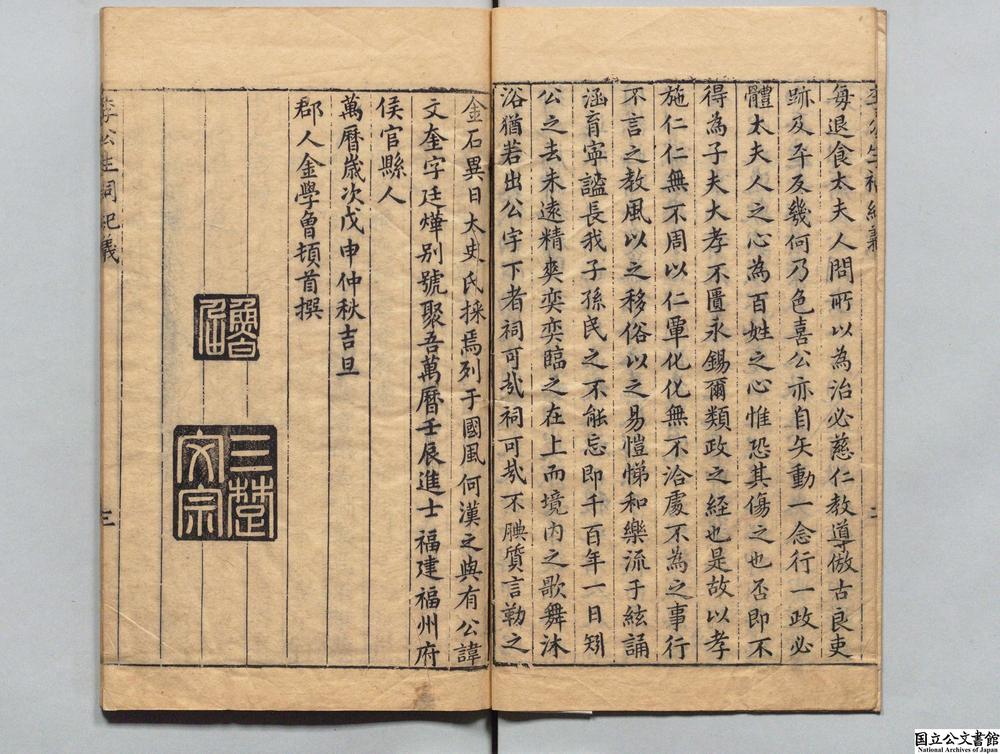 每退食太夫人問所以為治必慈仁教道倣古良吏
跡及平反幾何乃色喜公亦自矢動一念行一政必
體太夫人之心為百姓之心惟恐其傷之也否即不
得為子夫大孝不匱永錫爾類政之經也是故以孝
施仁仁無不周以仁覃化化無不洽處不為之事行
不言之教風以之移俗以之易愷悌和樂流于絃誦
涵育寧謐長我子孫民之不能忘即千百年一日矧
公之去未遠精爽奕奕臨之在上而境內之歌舞沐
浴猶若出公宇下者祠可㢤祠可㢤不腆質言勒之
金石異日太史氏採焉列于國風何漢之與有公諱
文奎字廷燁别號聚吾萬曆壬辰進士福建福州府
侯官縣人
萬曆歲次戊申仲秋吉旦
郡人金學曾頓首撰
三楚文宗
李公生祠紀義
三
国立公文書館
National Archives of Japan